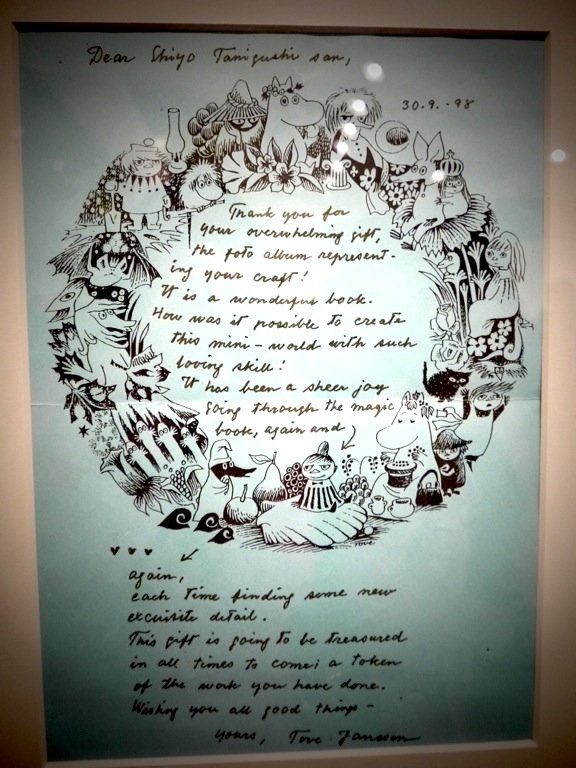 Dear Shiyo Tanigushi san,
30.9.-98
Thank you for
your overwhelming gift,
the foto album represent-
ing your craft!
It is a wonderful book.
How was it possible to create
this mini-world with such
loving skill!
It has been a sheer joy
going through the magic
book, again and
again,
each time finding some new
exquisite detail.
This gift is going to be treasured
in all times to come; a token
of the work you have done.
Wishing you all good things -
yours, Tove Jansson
TOVE